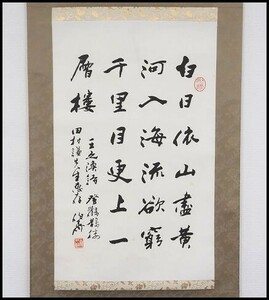 白日依山盡黄
河入海流欲窮
千里目更上一
層楼
王之渙詩 登鸛鵲楼
田村謙先生惠存